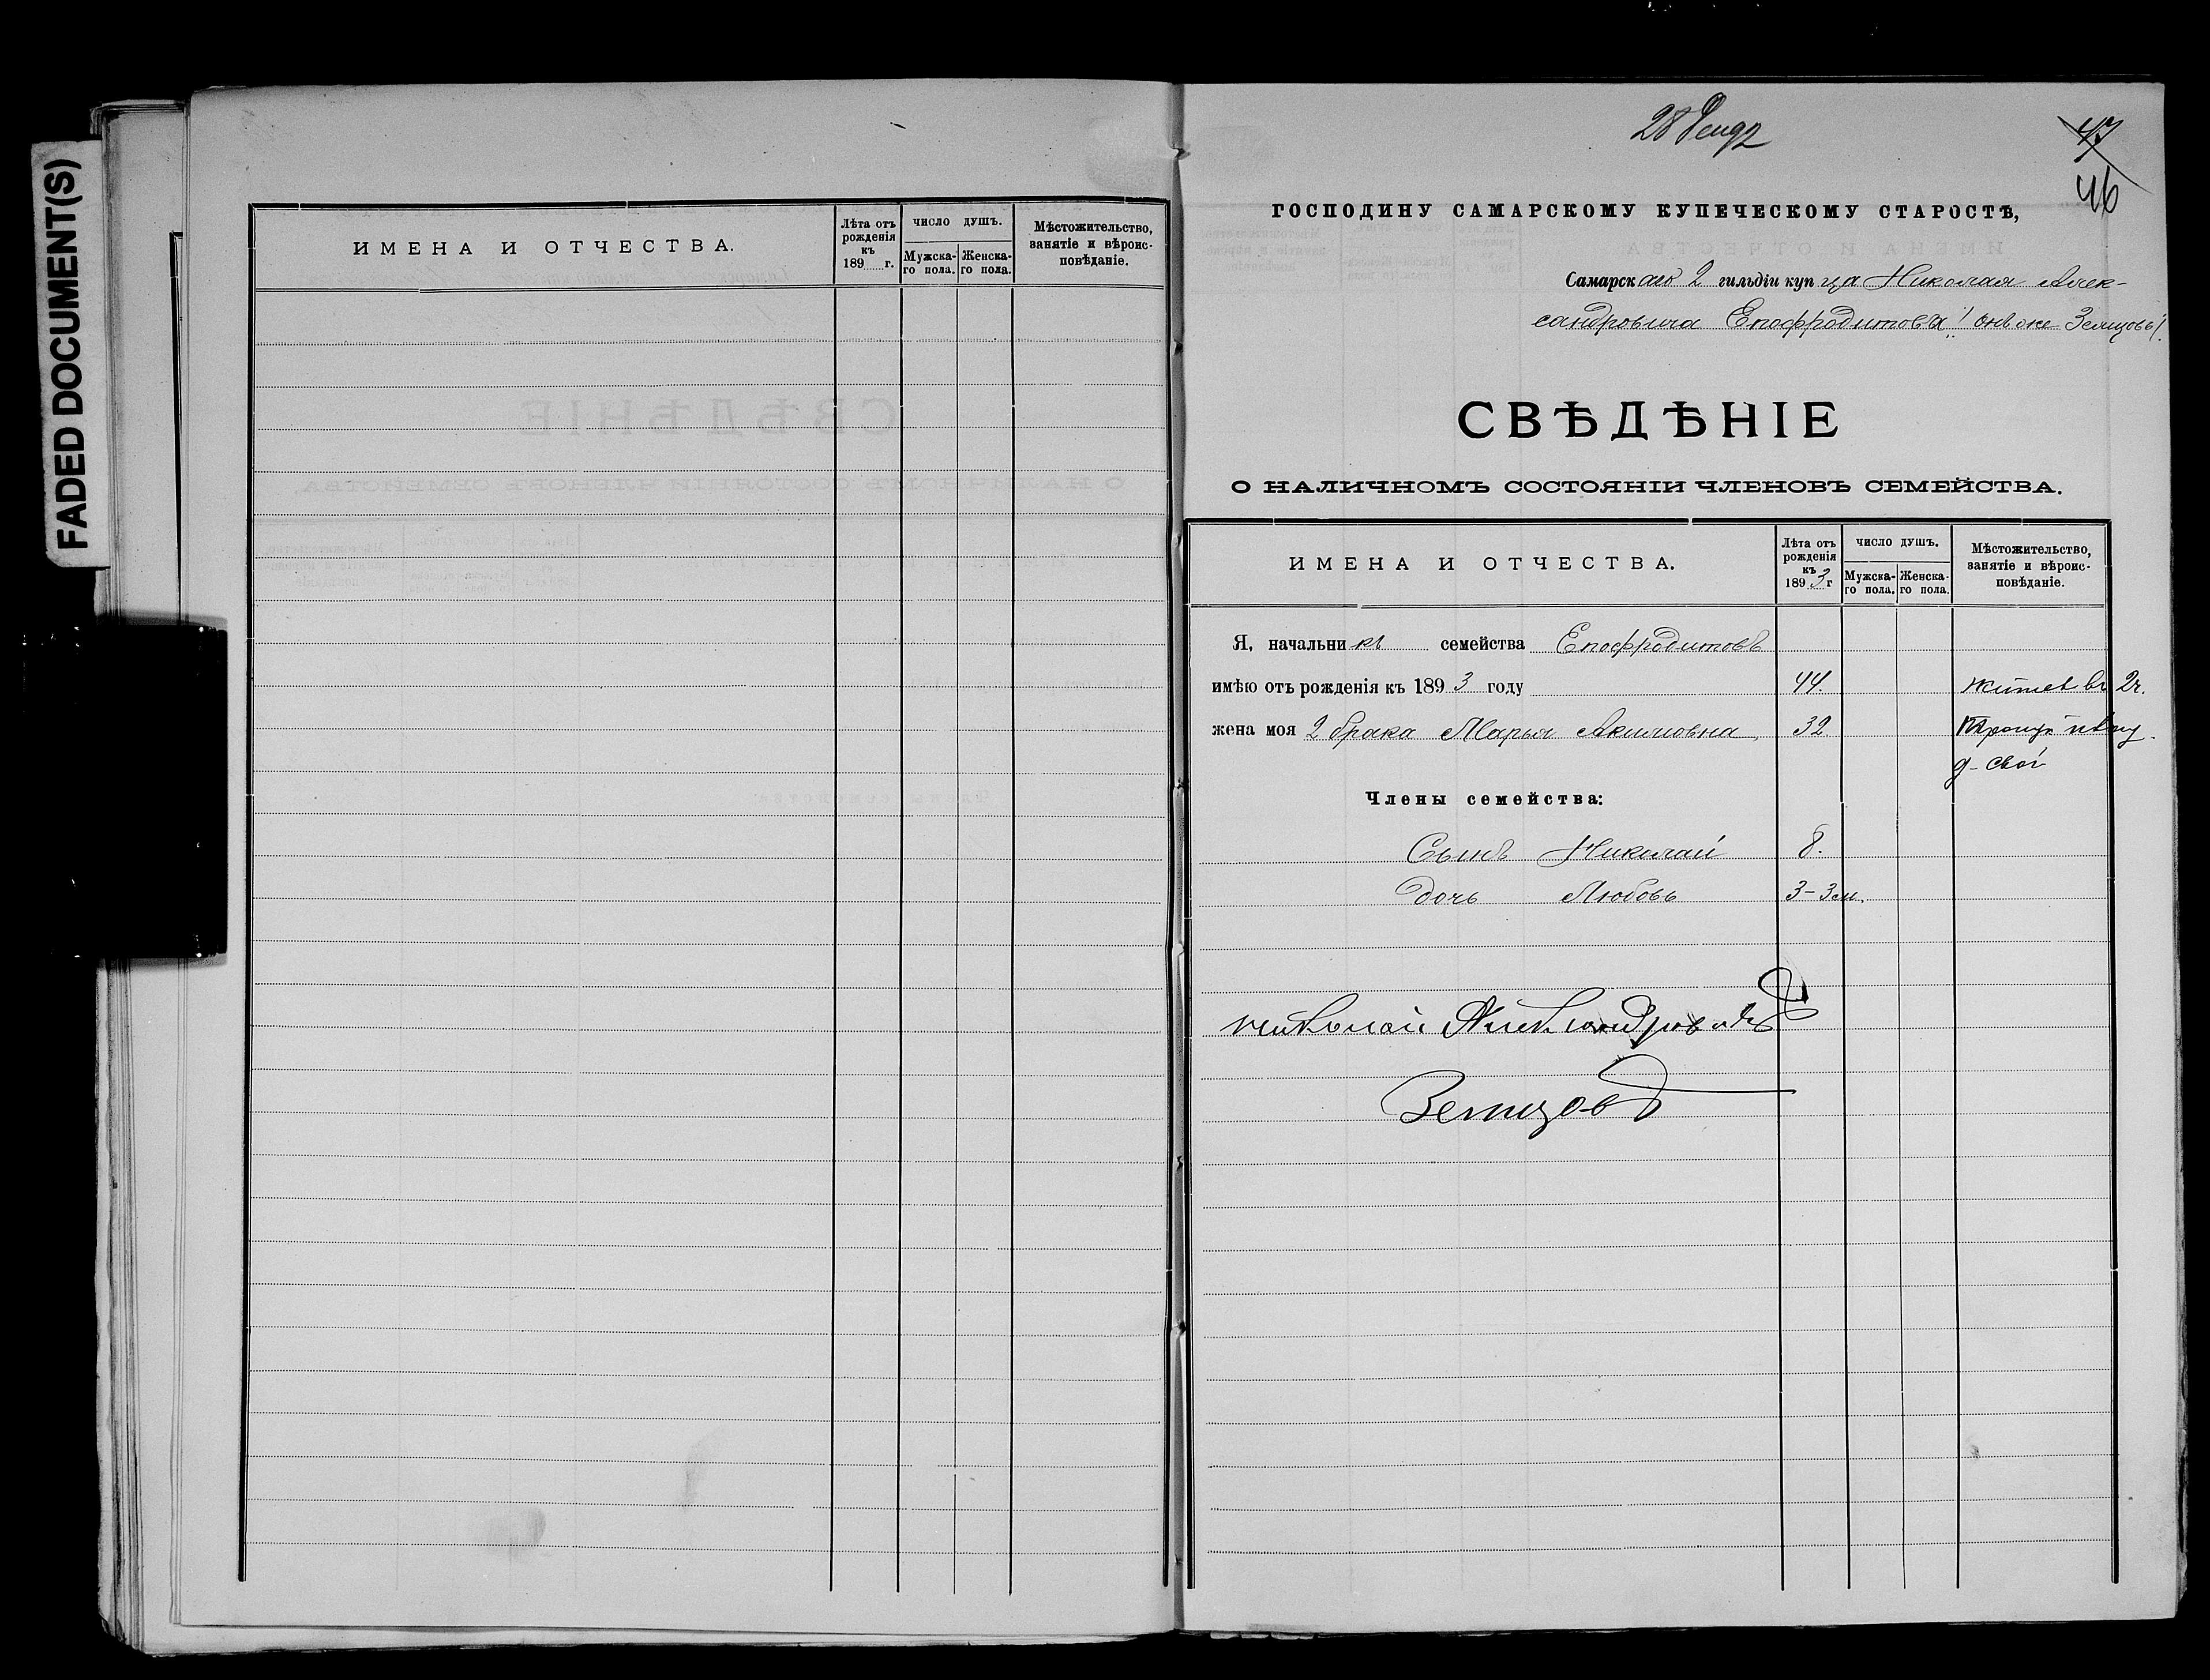 FADED DOCUMENT(S)
ИМЕНА И ОТЧЕСТВА.
Лѣта отъ рожденія къ 189 г.
ЧИСЛО ДУШЪ.
Мужска-го пола.
Женска-го пола.
Мѣстожительство, занятіе и вѣроис-повѣданіе.
47
46
ГОСПОДИНУ САМАРСКОМУ КУПЕЧЕСКОМУ СТАРОСТѢ,
Самарскаго 2 гильдіи купца Николая Алек-
сандровича Епофродитова (онъ же Земцовъ)
СВѢДѢНІЕ
О НАЛИЧНОМЪ СОСТОЯНІИ ЧЛЕНОВЪ СЕМЕЙСТВА.
ИМЕНА И ОТЧЕСТВА.
Лѣта отъ рожденія къ 1893 г
ЧИСЛО ДУШЪ.
Мужска-го пола.
Женска-го пола.
Мѣстожительство, занятіе и вѣроис-повѣданіе.
Я, начальникъ семейства Епофродитовъ
имѣю отъ рожденія къ 1893 году 44. въ 2ч.
жена моя 2 брака Марья Акимовна 32
д. свой
Члены семейства:
Сынъ Николай 8.
дочь Любовь 3-3м.
Николай Александровичъ
Земцовъ